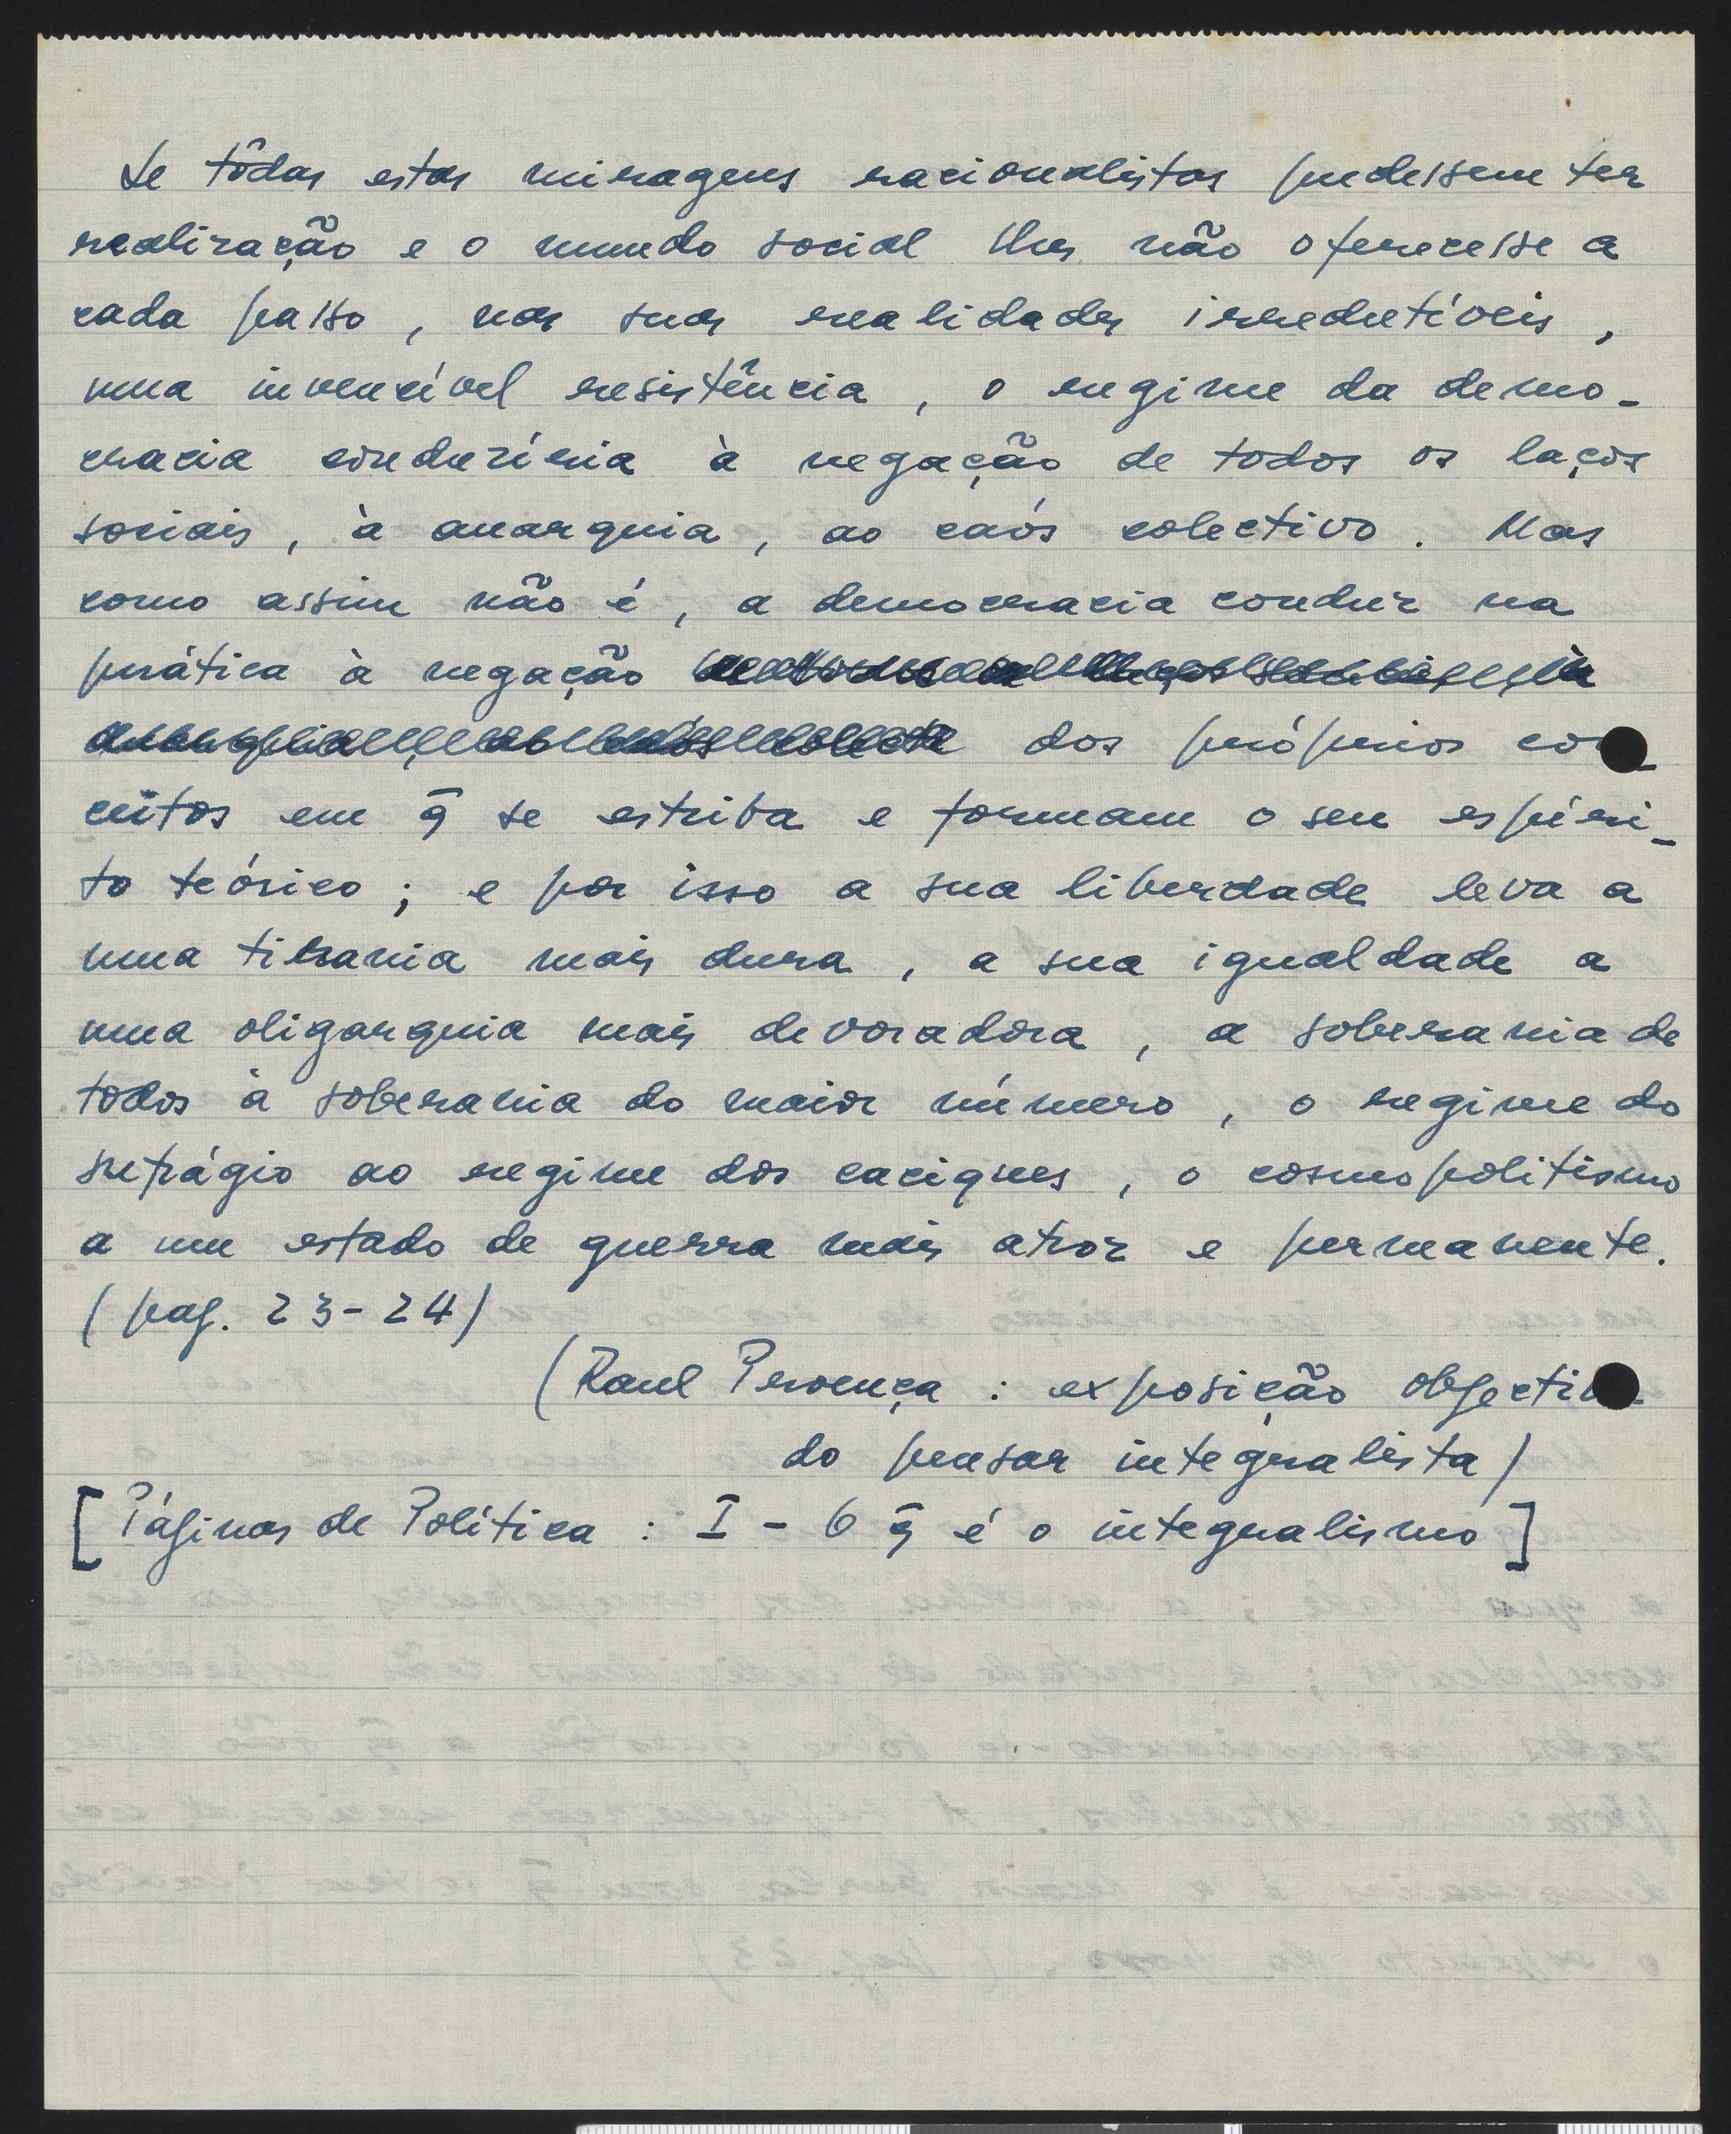 Se tôdas estas miragens racionalistas pudessem ter
realização e o mundo social lhes não oferecesse a
cada passo, nas suas realidades irredutíveis,
uma invencível resistência, o regime da demo-
cracia conduziria à negação de todos os laços
sociais, à anarquia, ao caós colectivo. Mas
como assim não é, a democracia conduz na
prática à negação de todos os laços sociais, à
anarquia, ao caós colecti dos próprios con-
ceitos em q̃ se estriba e formam o seu espíri-
to teórico; e por isso a sua liberdade leva a
uma tirania mais dura, a sua igualdade a
uma oligarquia mais devoradora, a soberania de
todos à soberania do maior número, o regime do
sufrágio ao regime dos caciques, o cosmopolitismo
a um estado de guerra mais atroz e permanente.
(pag. 23-24)
(Raul Proença: exposição objectiva
do pensar integralista)
[Páginas de Política: I - O q̃ é o integralismo]